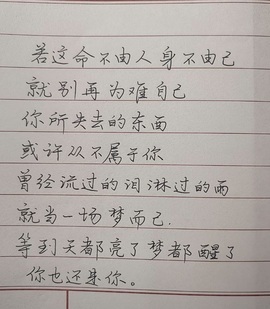 若这命不由人身不由己
就别再为难自己
你所失去的东西
或许从不属于你
曾经流过的泪淋过的雨
就当一场梦而已.
等到天都亮了梦都醒了
你也还是你。